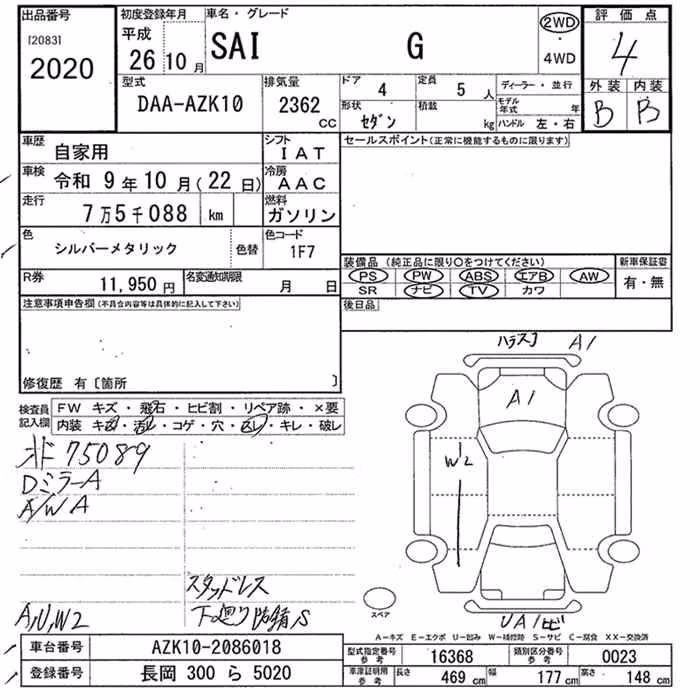 出品番号
[2083]
2020
初度登録年月
平成
26年10月
車名・グレード
SAI G
2WD
・
4WD
評価点
4
外装 内装
B B
型式
DAA-AZK10
排気量
2362
CC
ドア
4
定員
5人
形状
セダン
積載
kg
ディーラー・並行
モデル年式 年
ハンドル 左・右
車歴
自家用
シフト
IAT
車検
令和 9年10月(22日)
冷房
AAC
走行
7万5千088 km
燃料
ガソリン
色
シルバーメタリック
色替
色コード
1F7
R券
11,950円
名変通知期限
月 日
セールスポイント(正常に機能するものに限ります)
装備品(純正品に限り○をつけてください)
PS PW ABS エアB AW
SR ナビ TV カワ
新車保証書
有・無
後日品
注意事項申告欄(不具合内容等は具体的に記入して下さい)
修復歴 有〔箇所 〕
検査員
記入欄
FW キズ・飛石・ヒビ割・リペア跡・×要
内装 キズ・汚レ・コゲ・穴・スレ・キレ・破レ
75089
DミラーA
A/W A
スタッドレス
下廻り防錆S
A,U,W2
A1
A1
W2
UA1
スペア
A-キズ E-エクボ U-凹み W-補修跡 S-サビ C-腐食 XX-交換済
車台番号
AZK10-2086018
登録番号
長岡 300 ら 5020
型式指定番号
参考
16368
類別区分番号
参考
0023
車庫証明用
参考
長さ
469 cm
幅
177 cm
高さ
148 cm